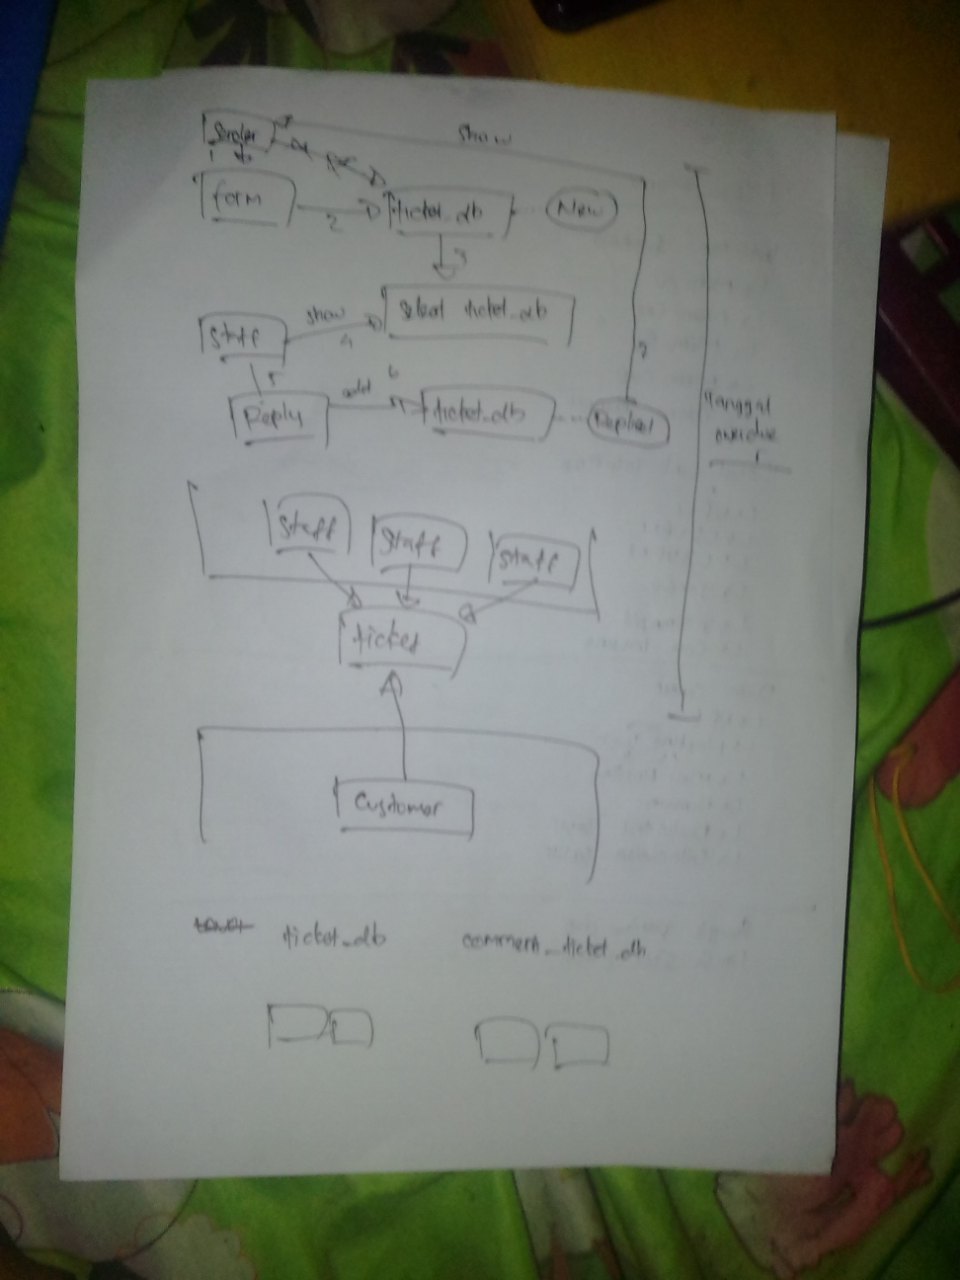 Sender
show
1
form
2
ticket_db
New
3
Select ticket_db
Staff
show
4
5
6
7
Reply
add
ticket_db
Replied
tanggal
overdue
Staff
Staff
Staff
ticket
Customer
ticket_db
comment_ticket_db